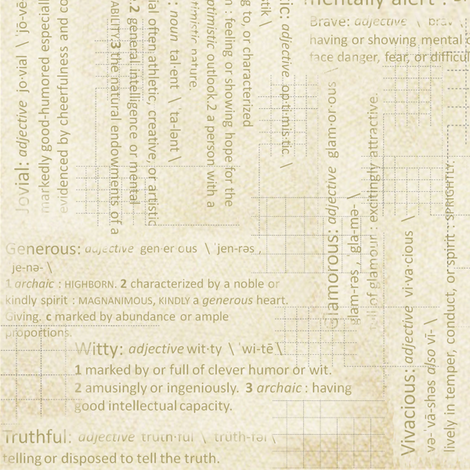 mentally alert :
Brave: adjective \ brāv \
having or showing mental
face danger, fear, or difficul
Jovial: adjective jo·vi·al \ jō-vē
markedly good-humored especial
evidenced by cheerfulness and co
ABILITY.3 the natural endowments of a
2 general intelligence or mental
ial often athletic, creative, or artistic
: noun talent \ ta-lənt \
timistic nature.
optimistic outlook.2 a person with a
n : feeling or showing hope for the
g to, or characterized
tik \
ic: adjective op·ti·mis·tic \
Glamorous: adjective glam·or·ous
glam-rəs , gla-mə- \
full of glamour : excitingly attractive.
Generous: adjective gen·er·ous \ ˈjen-rəs ,
ˈje-nə- \
1 archaic : HIGHBORN. 2 characterized by a noble or
kindly spirit : MAGNANIMOUS, KINDLY a generous heart.
Giving. c marked by abundance or ample
proportions.
Witty: adjective wit·ty \ ˈwi-tē \
1 marked by or full of clever humor or wit.
2 amusingly or ingeniously. 3 archaic : having
good intellectual capacity.
Truthful: adjective truth·ful \ truth-fəl \
telling or disposed to tell the truth.
Vivacious: adjective vi·va·cious
və-ˈvā-shəs also vī- \
lively in temper, conduct, or spirit : SPRIGHTLY.